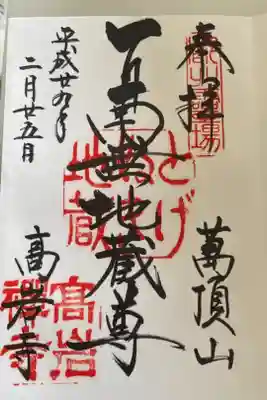 奉拝
萬頂山
南無地蔵尊
とげ
ぬき
地蔵
平成廿九年
二月廿五日
高岩寺
高岩
禅寺